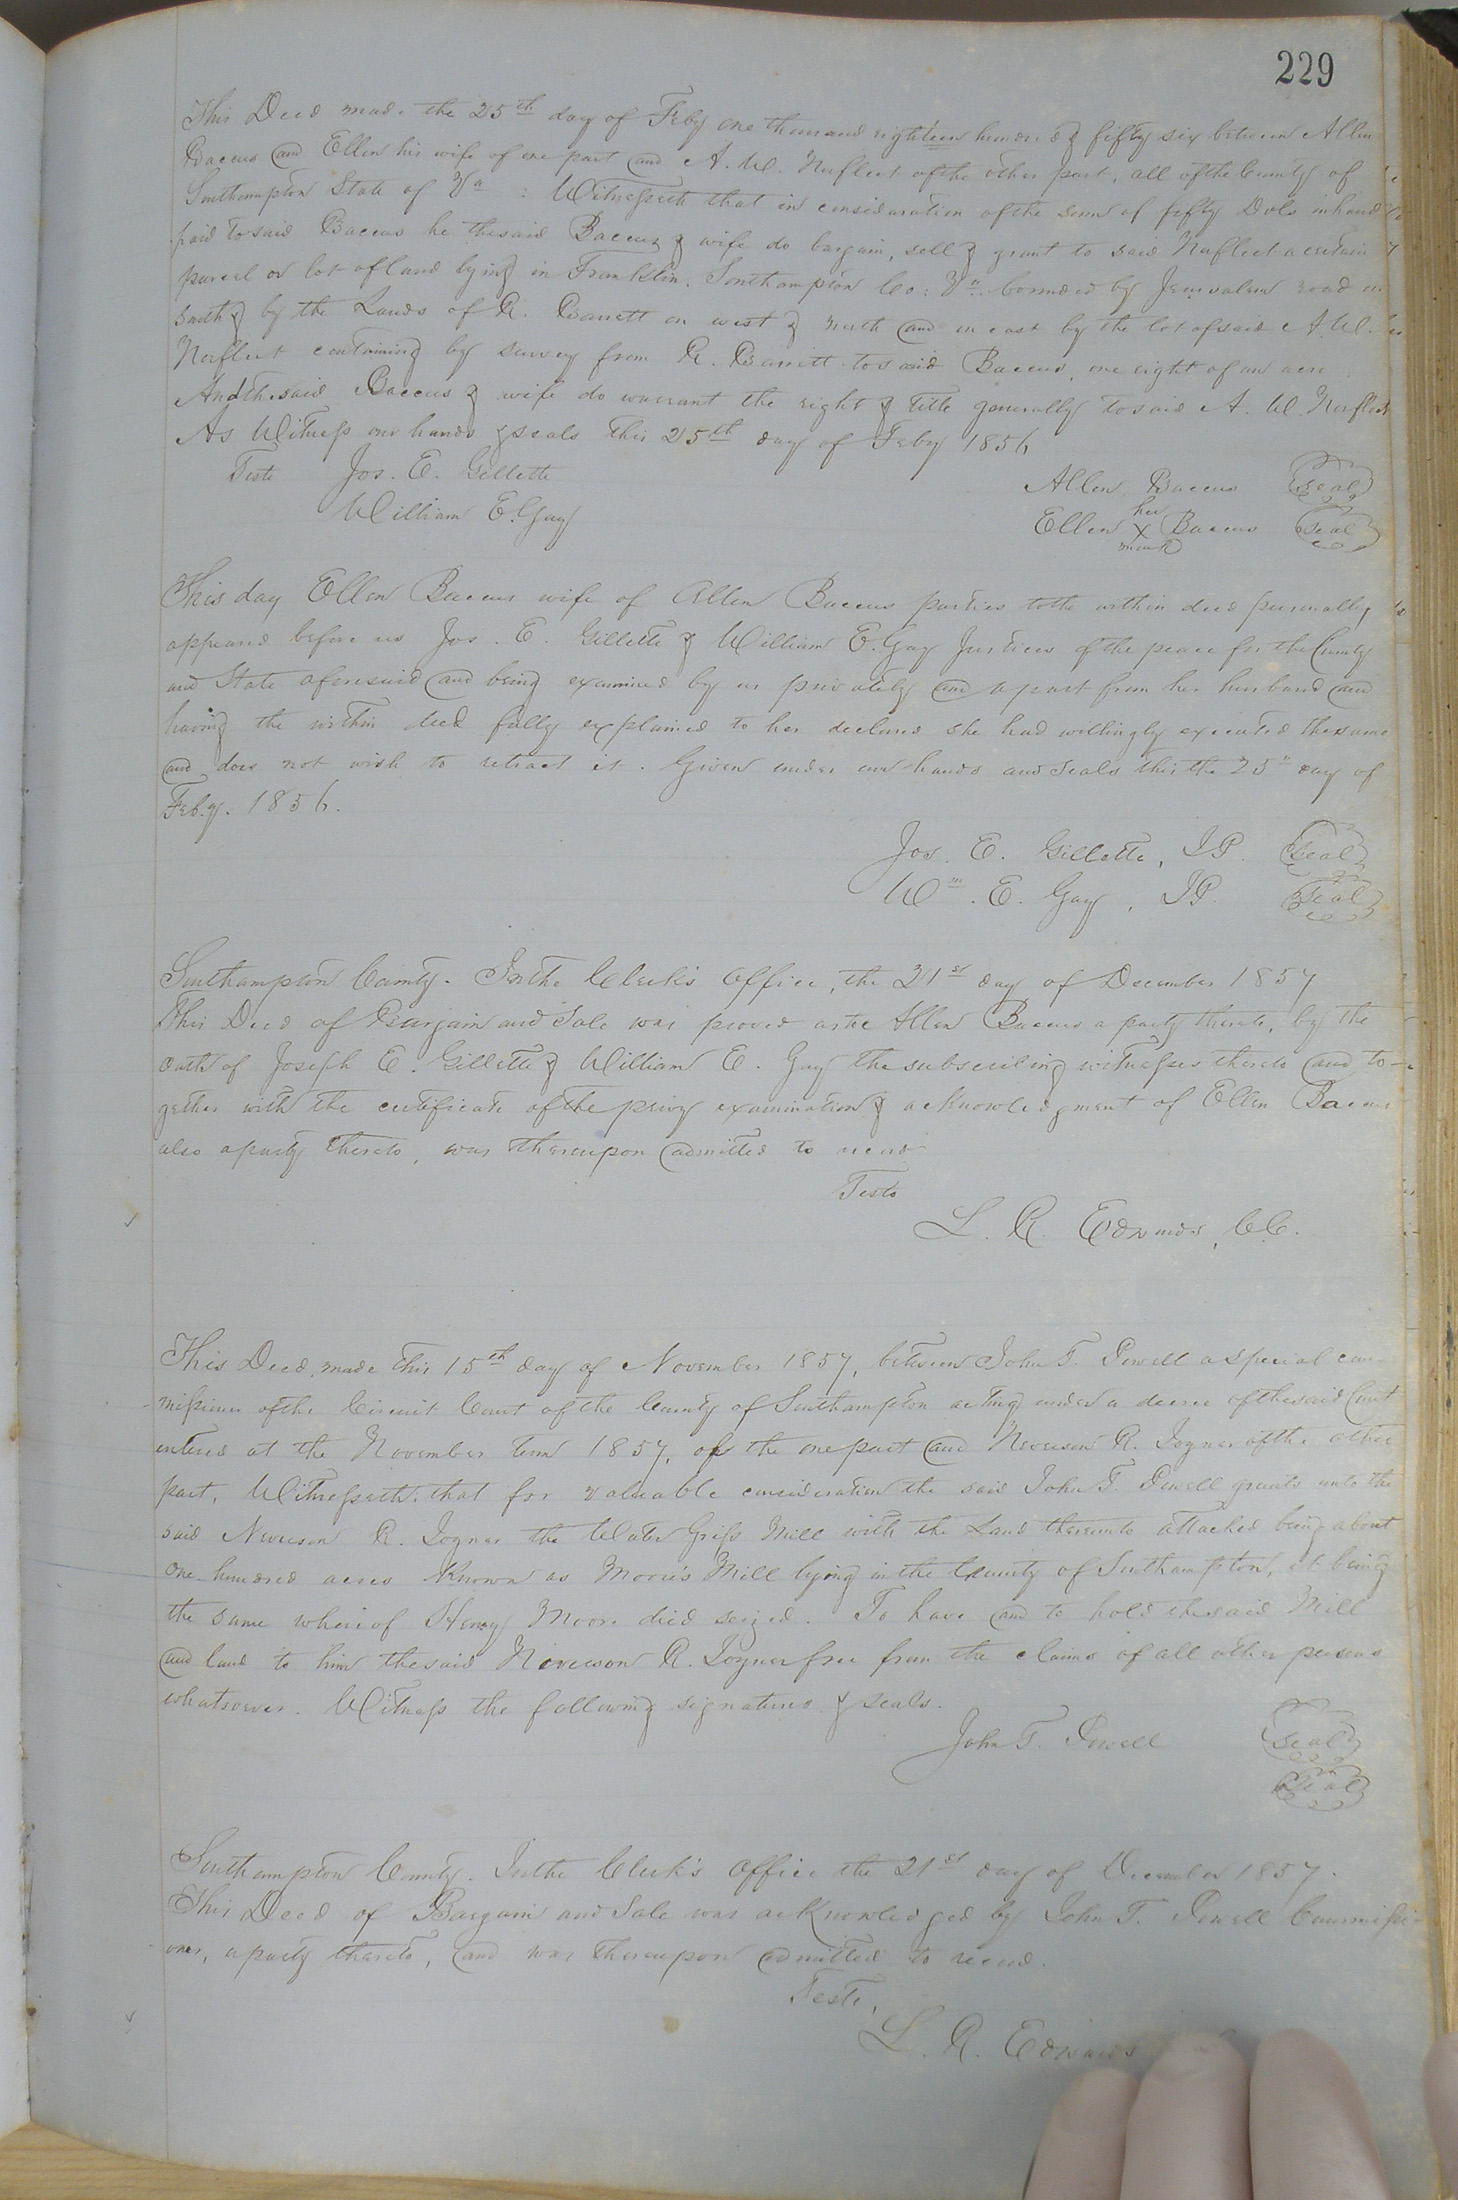 229
This Deed made the 25th day of Feby one thousand eighteen hundred & fifty six between Allen
Baccus and Ellen his wife of one part and A. W. Norfleet of the other part, all of the County of
Southampton State of Va : Witnesseth that in consideration of the sum of fifty Dols in hand
paid to said Baccus he the said Baccus & wife do bargain, sell & grant to said Norfleet a certain
parcel or lot of land lying in Franklin, Southampton Co: Va. bounded by Jerusalem road on
South & by the Lands of R. Barrett on west & north and on east by the lot of said A. W.
Norfleet containing by survey from R. Barrett to said Baccus, one eight of an acre
And the said Baccus & wife do warrant the right & title generally to said A. W. Norfleet
As Witness our hands & seals this 25th day of Feby 1856
Teste Jos. E. Gillette
Allen Baccus Seal
William E. Gay
Ellen her X mark Baccus Seal
This day Ellen Baccus wife of Allen Baccus parties to the within deed personally
appeared before us Jos. E. Gillette & William E. Gay Justices of the peace for the County
and State aforesaid and being examined by us privately and apart from her husband and
having the within deed fully explained to her declares she had willingly executed the same
and does not wish to retract it. Given under our hands and Seals this the 25" day of
Feby. 1856.
Jos. E. Gillette, JP. Seal
Wm. E. Gay, JP. Seal
Southampton County. In the Clerk's Office, the 21st day of December 1857
This Deed of Bargain and Sale was proved as to Allen Baccus a party thereto, by the
oath of Joseph E. Gillette & William E. Gay the subscribing witnesses thereto and to-
gether with the certificate of the privy examination & acknowledgment of Ellen Baccus
also a party thereto, was thereupon admitted to record
Teste
L. R. Edwards, C.C.
This Deed, made this 15th day of November 1857, between John T. Sewell a special com-
missioner of the Circuit Court of the County of Southampton acting under a decree of the said Court
entered at the November term 1857, of the one part and Neverson R. Joyner of the other
part, Witnesseth, that for valuable consideration the said John T. Sewell grants unto the
said Neverson R. Joyner the Water Griss Mill with the Land thereunto attached being about
one hundred acres Known as Moore's Mill lying in the County of Southampton, it being
the same whereof Henry Moore died seized. To have and to hold the said Mill
and land to him the said Neverson R. Joyner free from the claims of all other persons
whatsoever. Witness the following signatures & seals.
John T. Sewell Seal
Seal
Southampton County. In the Clerk's Office the 21st day of December 1857.
This Deed of Bargain and Sale was acKnowledged by John T. Sewell Commissi-
oner, a party thereto, and was thereupon admitted to record.
Teste,
L. R. Edwards